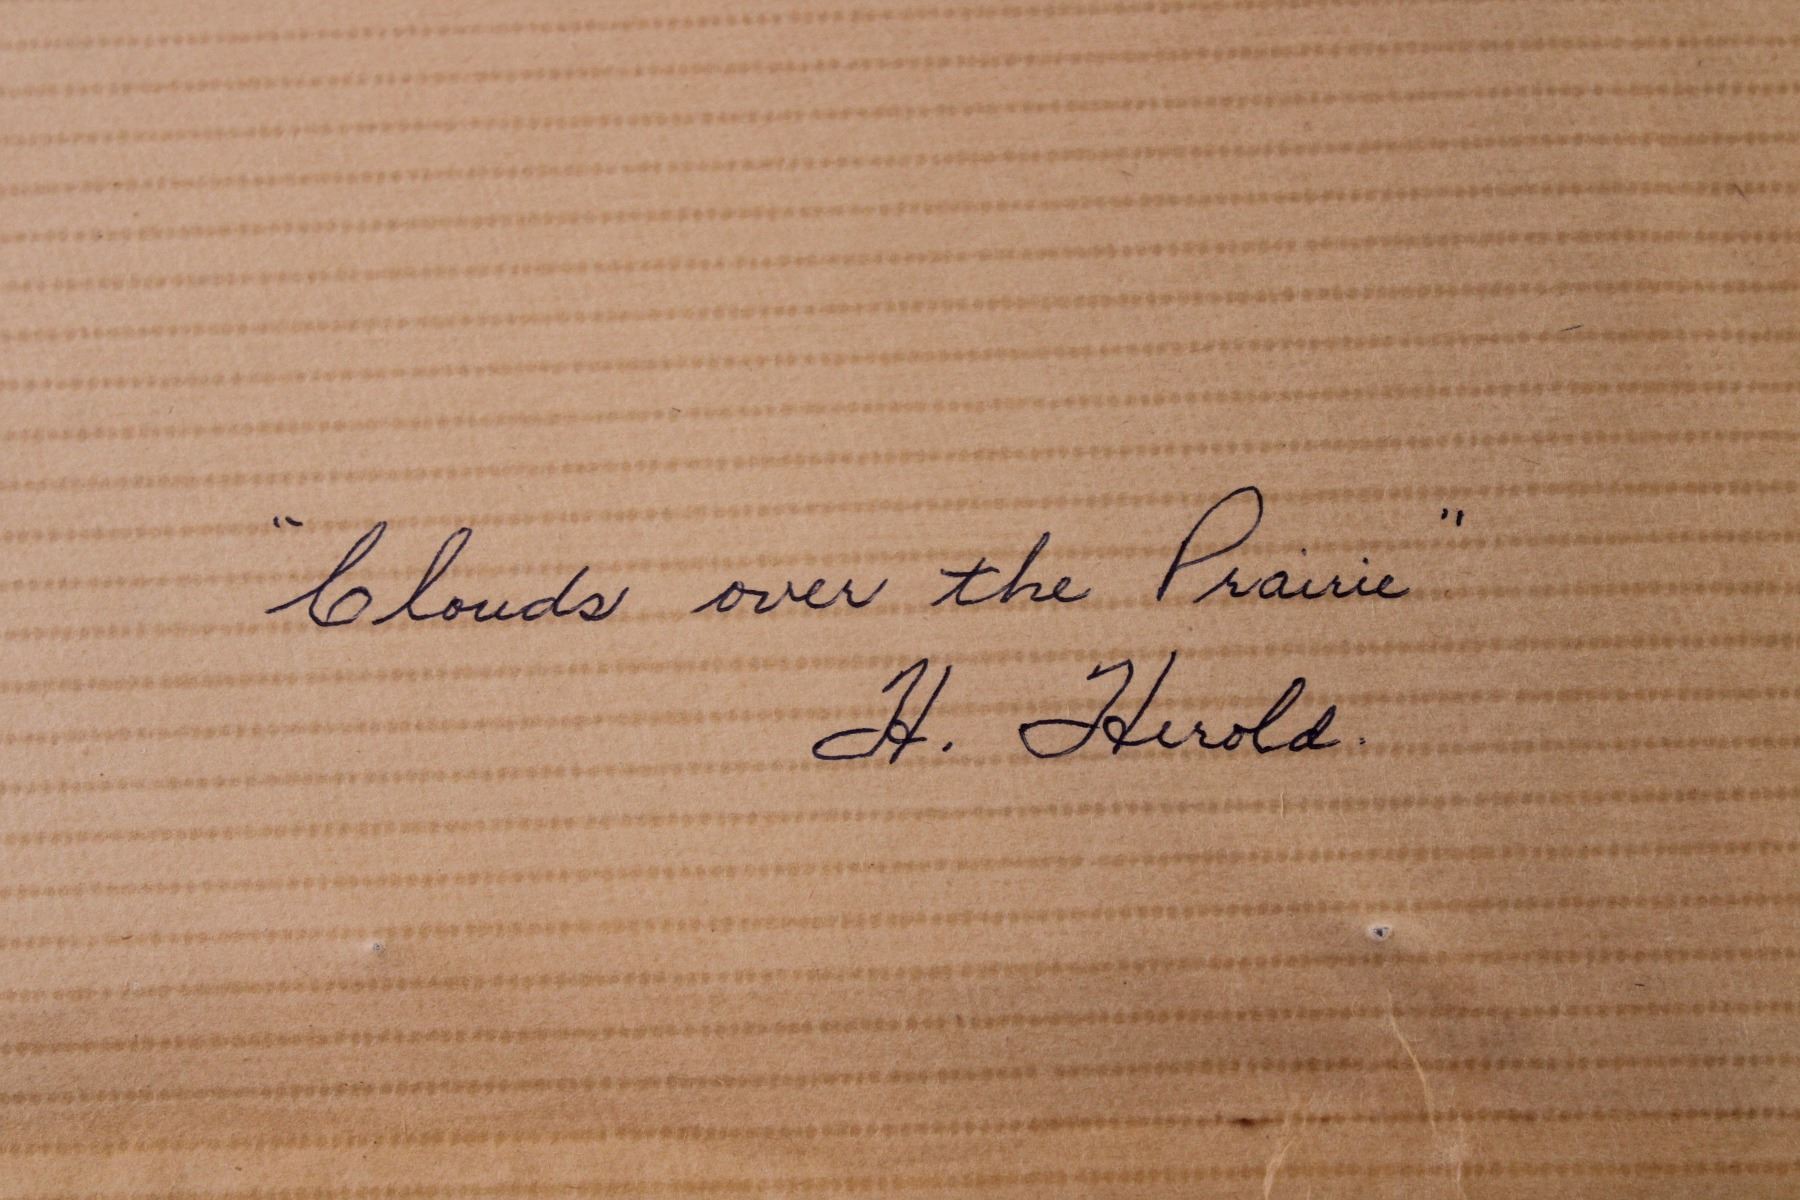 "Clouds over the Prairie"
H. Herold.